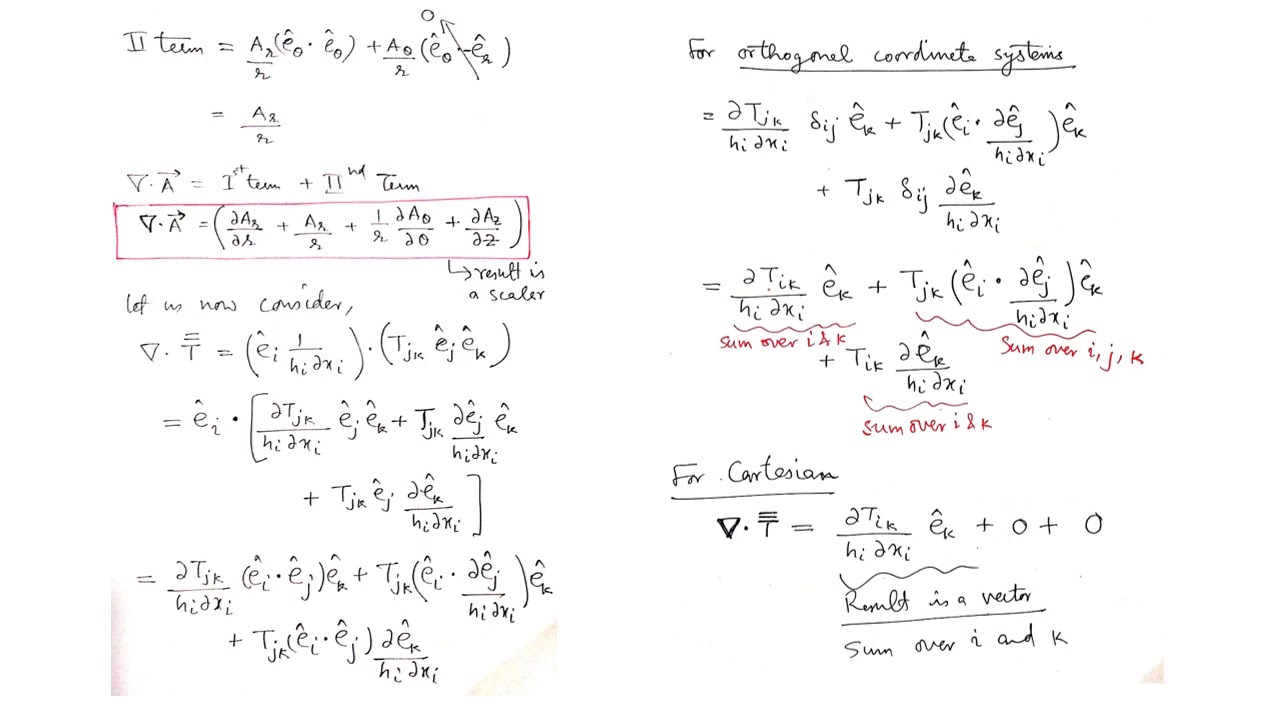 II term = A_r/r (ê_θ · ê_θ) + A_θ/r (ê_θ · -ê_r) 0
= A_r/r
∇·A⃗ = Ist term + IInd Term
∇·A⃗ = (∂A_r/∂r + A_r/r + 1/r ∂A_θ/∂θ + ∂A_z/∂z)
↳ result is
a scaler
let us now consider,
∇·T̿ = (ê_i 1/(h_i ∂x_i)) · (T_jk ê_j ê_k)
= ê_i · [∂T_jk/(h_i ∂x_i) ê_j ê_k + T_jk ∂ê_j/(h_i ∂x_i) ê_k
+ T_jk ê_j ∂ê_k/(h_i ∂x_i)]
= ∂T_jk/(h_i ∂x_i) (ê_i · ê_j) ê_k + T_jk (ê_i · ∂ê_j/(h_i ∂x_i)) ê_k
+ T_jk (ê_i · ê_j) ∂ê_k/(h_i ∂x_i)
For orthogonel coordinate systems
= ∂T_jk/(h_i ∂x_i) δ_ij ê_k + T_jk (ê_i · ∂ê_j/(h_i ∂x_i)) ê_k
+ T_jk δ_ij ∂ê_k/(h_i ∂x_i)
= ∂T_ik/(h_i ∂x_i) ê_k + T_jk (ê_i · ∂ê_j/(h_i ∂x_i)) ê_k
sum over i & k
Sum over i, j, k
+ T_ik ∂ê_k/(h_i ∂x_i)
sum over i & k
For Cartesian
∇·T̿ = ∂T_ik/(h_i ∂x_i) ê_k + 0 + 0
Result is a vector
Sum over i and k